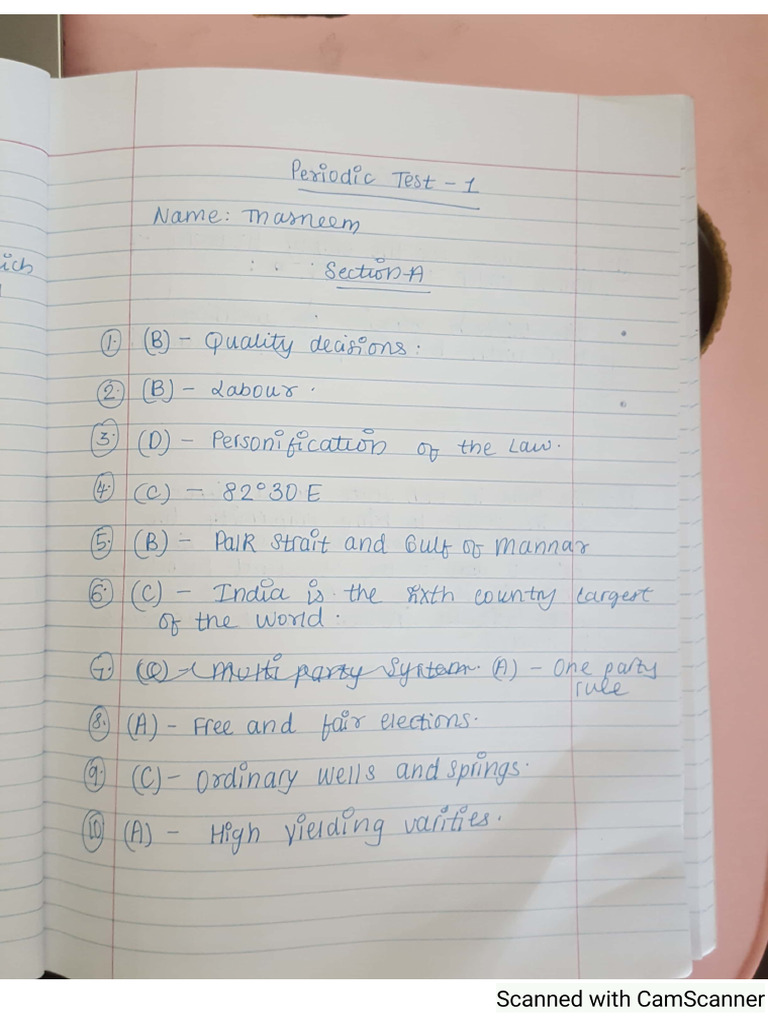 Periodic Test - 1
Name: Thasneem
Section-A
ich
1. (B) - Quality decisions.
2. (B) - Labour.
3. (D) - Personification of the Law.
4. (C) - 82°30 E
5. (B) - Palk Strait and Gulf of Mannar
6. (C) - India is the sixth country largest
of the world.
7. (C) - Multi party System. (A) - One party
rule
8. (A) - Free and fair elections.
9. (C) - Ordinary wells and springs.
10 (A) - High yielding varities.
Scanned with CamScanner